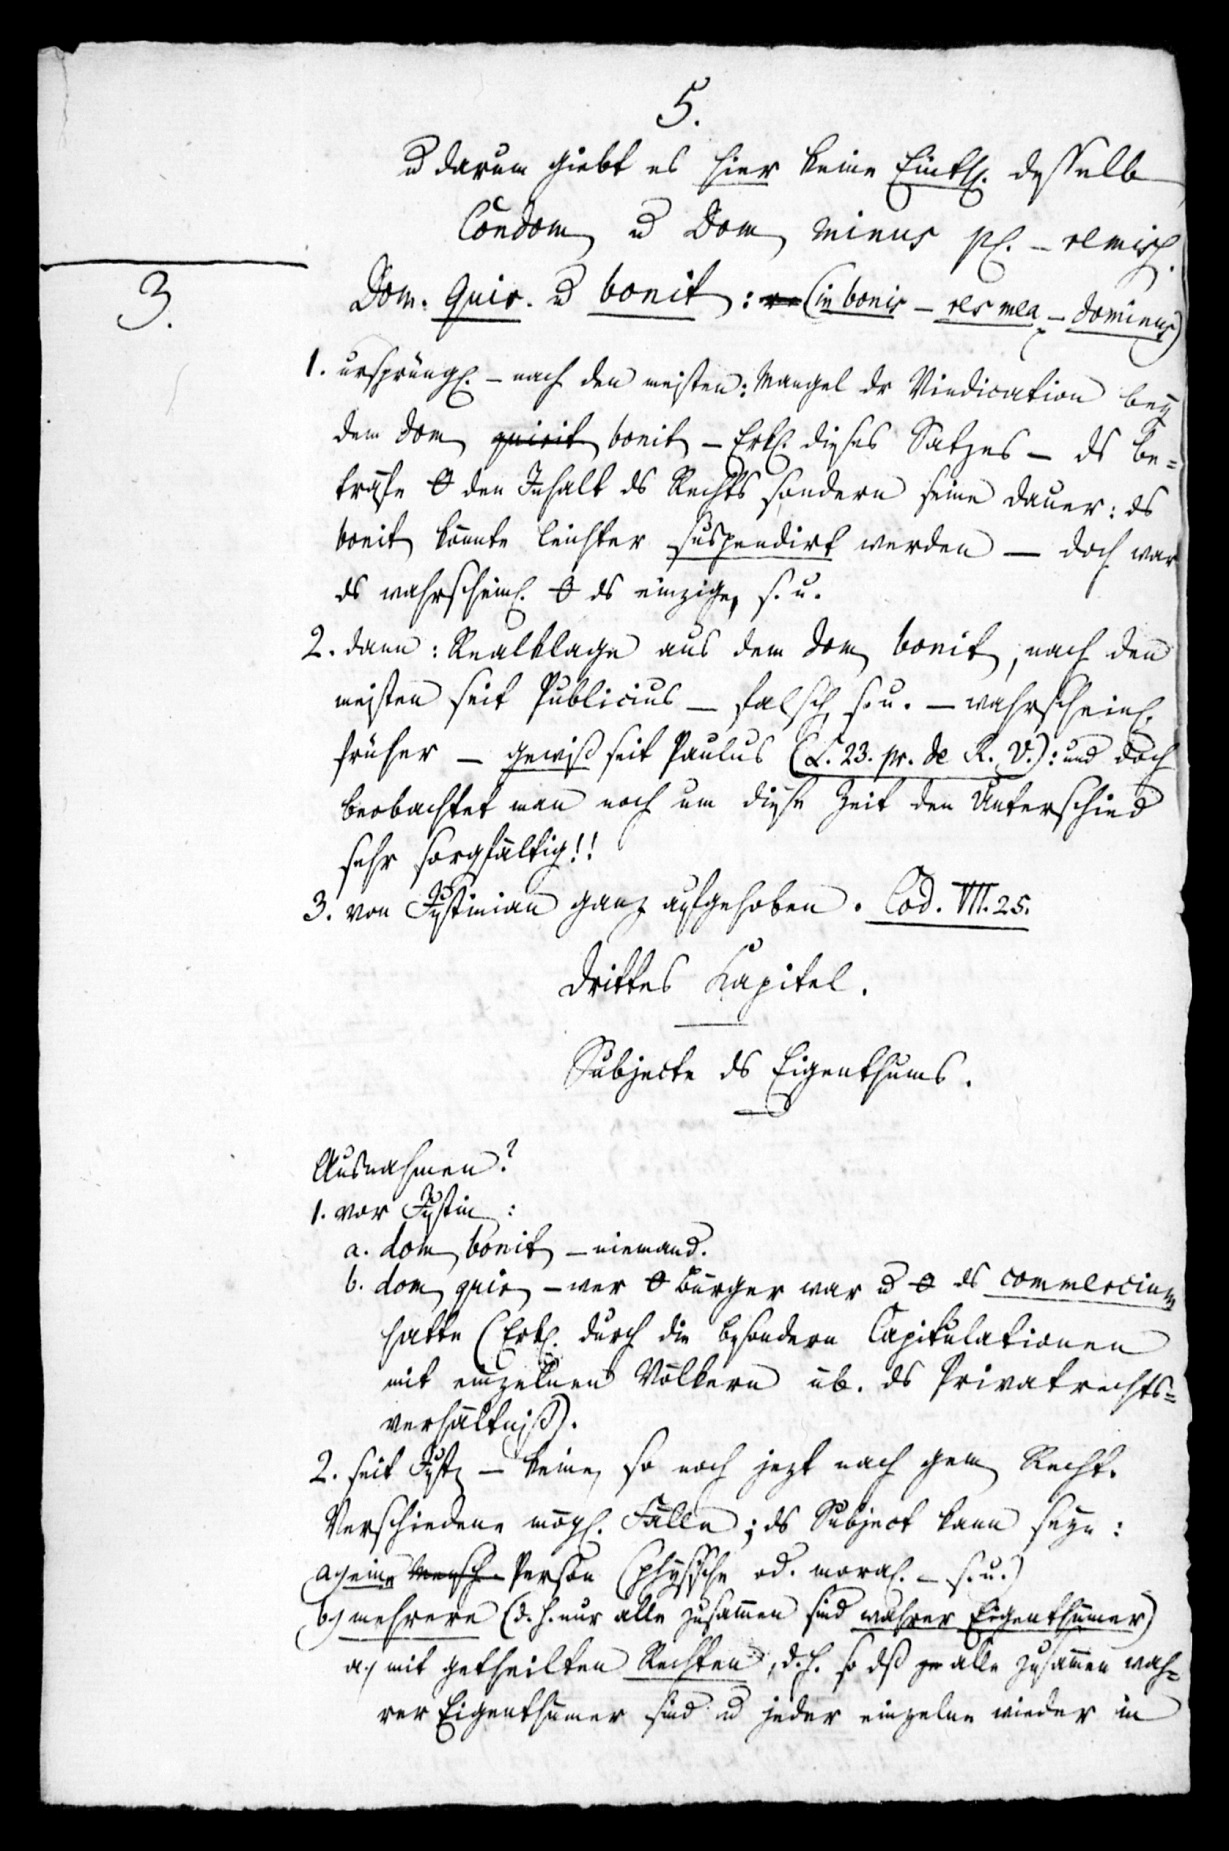 5.
u darum giebt es hier keine Einth. desselb
Condom u Dom minus pl. –
3.
Dom. Quir. u bonit: (in bonis – res mea – dominus)
1. ursprüngl. – nach den meisten: Mangel dr Vindication bey
dem dom quirit bonit – Erkl. dieses Satzes – ds be=
träfe θ den Inhalt ds Rechts sondern seine Dauer: ds
bonit konnte leichter suspendirt werden – doch war
ds wahrscheinl. θ ds einzige, s. u.
2. dann: Realklage aus dem dom bonit, nach den
meisten seit Publicius – falsch s. u. – wahrscheinl.
früher – gewiß seit Paulus (L. 23. pr. de R. V.): und doch
beobachtet man noch um diese Zeit den Unterschied
sehr sorgfältig!!
3. von Justinian ganz aufgehoben. Cod. VII. 25.
Drittes Kapitel.
Subjecte ds Eigenthums.
Ausnahmen?
1. vor Justin:
a. dom bonit – niemand.
b. dom quir – wer θ Bürger war u θ ds commercium
hatte (Erkl. durch die besondern Capitulationen
mit einzelnen Völkern üb. ds Privatrechts=
verhältniß).
2. seit Just – keine, so noch jezt nach gem Recht.
Verschiedene mögl. Fälle; ds Subject kann seyn:
a.) eine Mensch Person (physische od. moral. – s. u.)
b.) mehrere (d. h. nur alle zusammen sind wahrer Eigenthümer)
a.) mit getheilten Rechten, d. h. so dß alle zusammen wah=
rer Eigenthümer sind u jeder einzelne wieder in